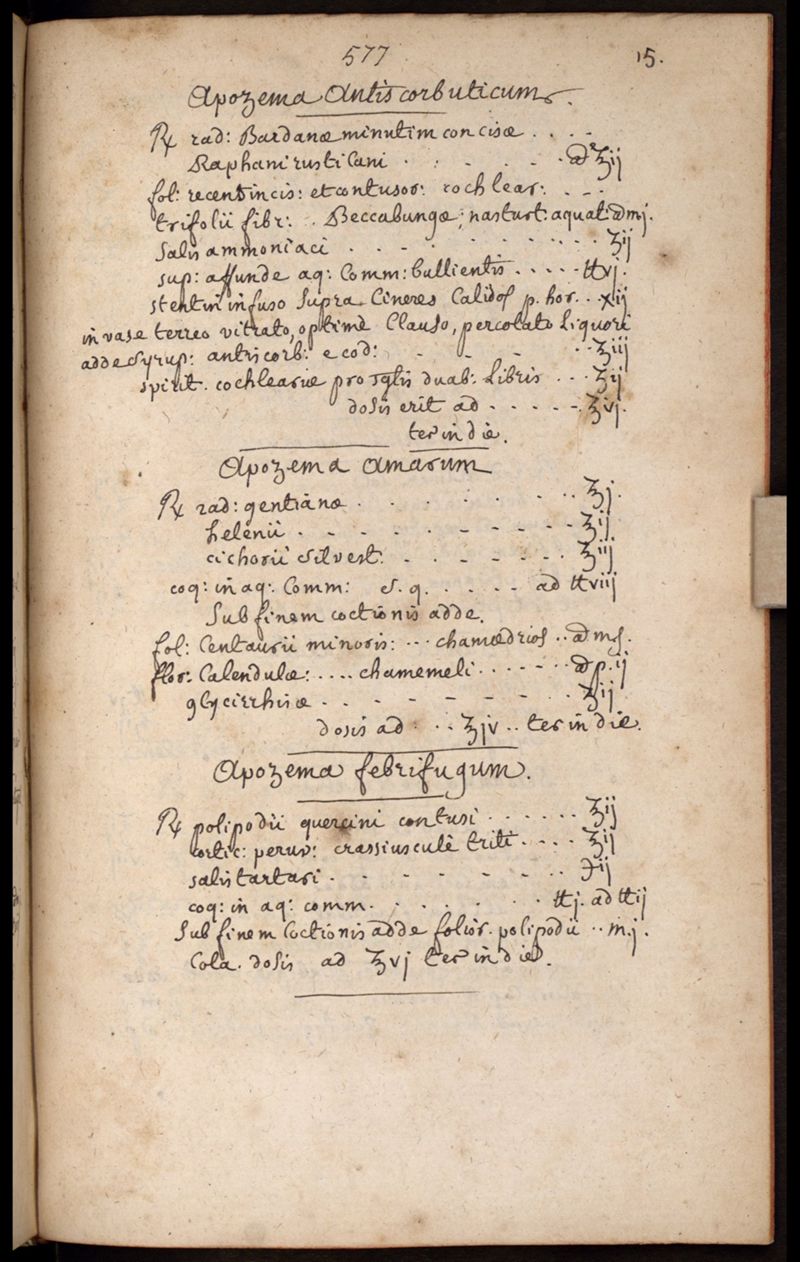 577 15.
Apozema Antiscorbuticum.
℞ rad: Bardanæ minutim concisæ . . . -
Raphani rusticani . . - . - . - . ā ℥ij
fol: recent incis: et contusor: cochlear: . - -
trifolii fibr: . Beccabungæ; nasturt: aquat: ā mj.
Salis ammoniaci . . . - . - . - . . . . . ʒij
sup: affunde aq: Comm: bullientis . . . . . ℔vj.
stent in infuso supra Cineres Calidos p. hor. . . xij
in vase terreo vitrato, optimè Clauso, percolato Liquori
adde Syrup: antiscorb: ecod: - - - . . ℥iij
spirit. cochleariæ pro sglis duab: Libris . . . ʒij
dosis erit ad - . . . . -. ℥vj.
ter in die.
Apozema Amarum
℞ rad: gentianæ . . . . . . - . . ℥j.
helenii . - . - . - . - - - - - - ℥ij.
cichorii silvest. . - . - - - . . ℥ij
coq: in aq: Comm: S. q. . . . - - ad ℔viij
Sub finem coctionis adde.
fol: Centaurii minoris: . . . chamædrios . . ā mj.
flor: Calendulæ: . . . . chamemeli . . . . - . . ā p. ij
glycirrhisæ - . - - - - - . . ℥ij.
dosis ad . . . ℥iv . . ter in die.
Apozema febrifugum.
℞ polipodii quercini contusi . . . . . . ℥ij
cortic: peruv: crassiusculè triti . . . . ℥ij
salis tartari . - - - - - . . ℈ij
coq: in aq: comm. . . . . . . . ℔j. ad ℔ij
Sub finem Coctionis adde folior. polipodii . . m.j.
Cola. dosis ad ℥vj ter in die.